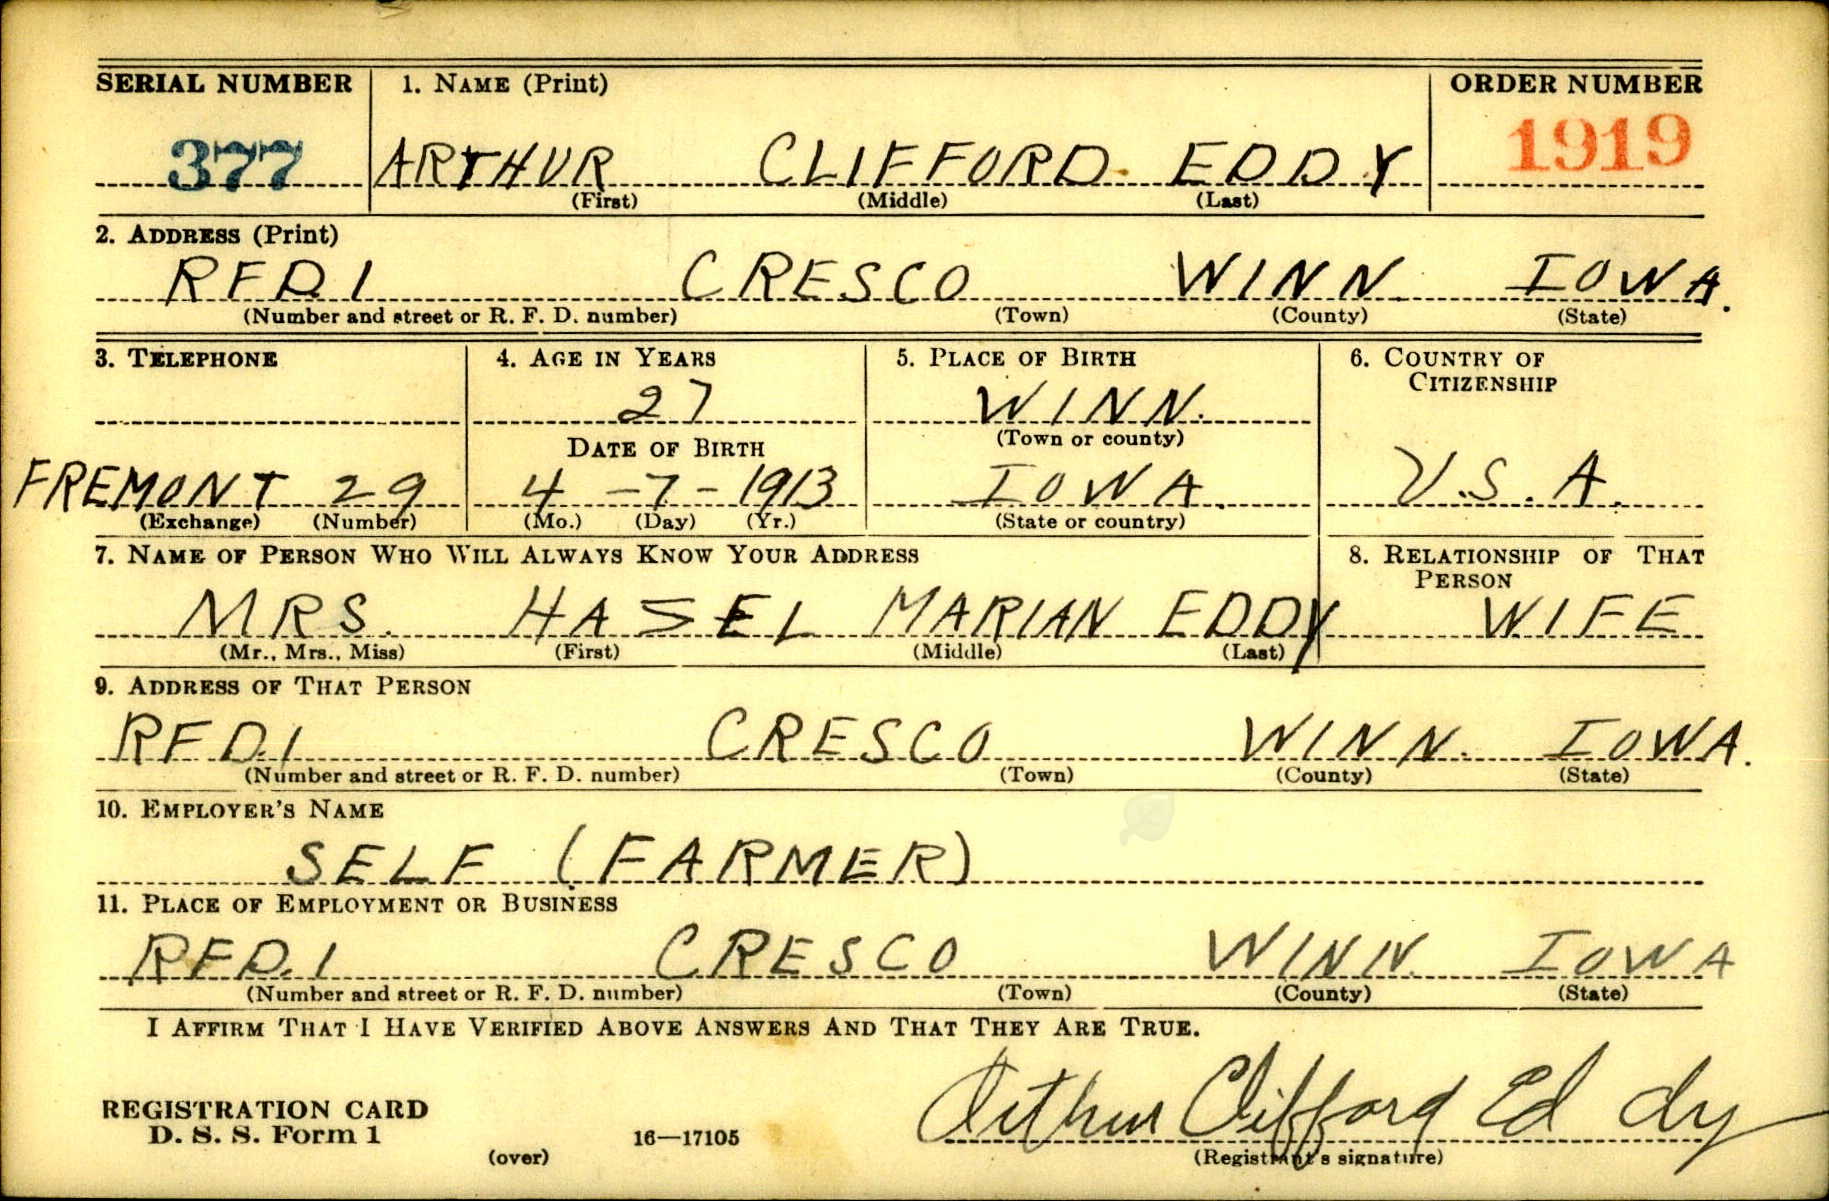 SERIAL NUMBER 1. NAME (Print) ORDER NUMBER
377 ARTHUR CLIFFORD EDDY 1919
(First) (Middle) (Last)
2. ADDRESS (Print)
RFD.1 CRESCO WINN. IOWA.
(Number and street or R. F. D. number) (Town) (County) (State)
3. TELEPHONE 4. AGE IN YEARS 5. PLACE OF BIRTH 6. COUNTRY OF CITIZENSHIP
27 WINN.
DATE OF BIRTH (Town or county)
FREMONT 29 4-7-1913 IOWA. U.S.A.
(Exchange) (Number) (Mo.) (Day) (Yr.) (State or country)
7. NAME OF PERSON WHO WILL ALWAYS KNOW YOUR ADDRESS 8. RELATIONSHIP OF THAT PERSON
MRS. HASEL MARIAN EDDY WIFE
(Mr., Mrs., Miss) (First) (Middle) (Last)
9. ADDRESS OF THAT PERSON
RFD.1 CRESCO WINN. IOWA.
(Number and street or R. F. D. number) (Town) (County) (State)
10. EMPLOYER'S NAME
SELF (FARMER)
11. PLACE OF EMPLOYMENT OR BUSINESS
RFD.1 CRESCO WINN. IOWA
(Number and street or R. F. D. number) (Town) (County) (State)
I AFFIRM THAT I HAVE VERIFIED ABOVE ANSWERS AND THAT THEY ARE TRUE.
Arthur Clifford Eddy
REGISTRATION CARD
D. S. S. Form 1 16—17105
(over) (Registrant's signature)